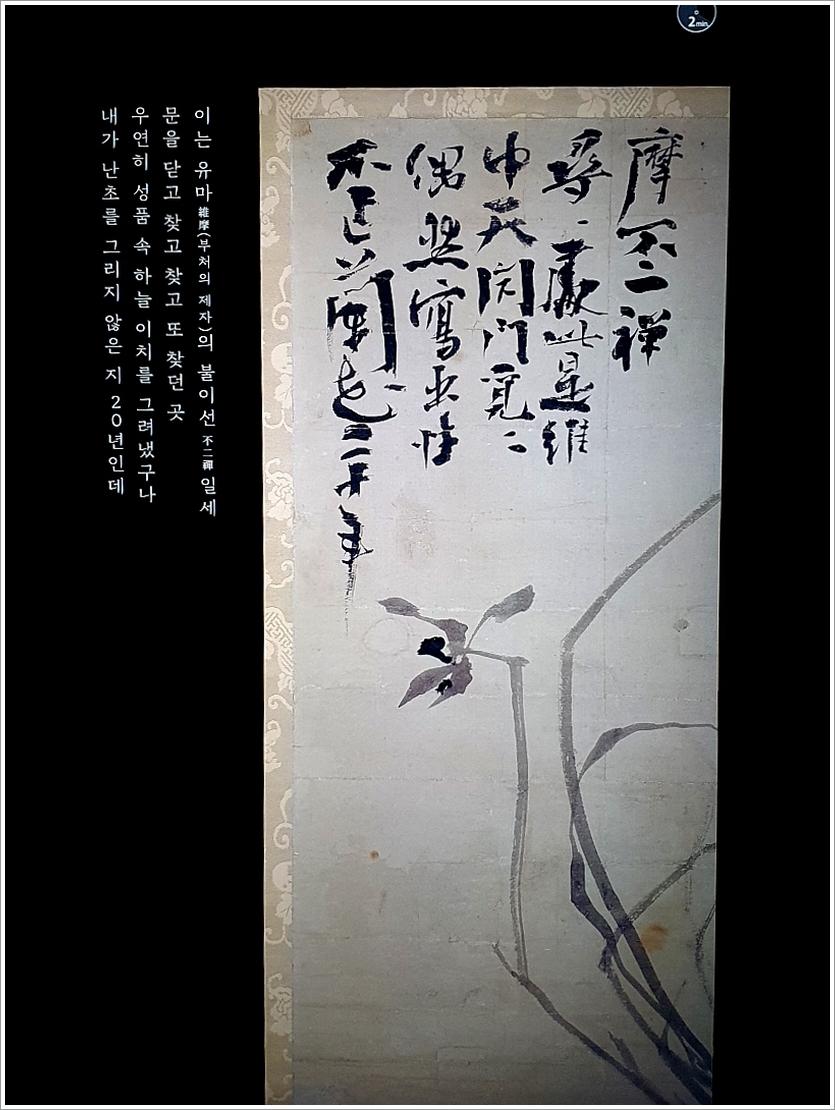 2min
내가 난초를 그리지 않은 지 20년인데
우연히 성품 속 하늘 이치를 그려냈구나
문을 닫고 찾고 찾고 또 찾던 곳
이는 유마維摩(부처의 제자)의 불이선不二禪일세
不作蘭花二十年
偶然寫出性
中天閉門覓〻
尋〻處此是維
摩不二禪